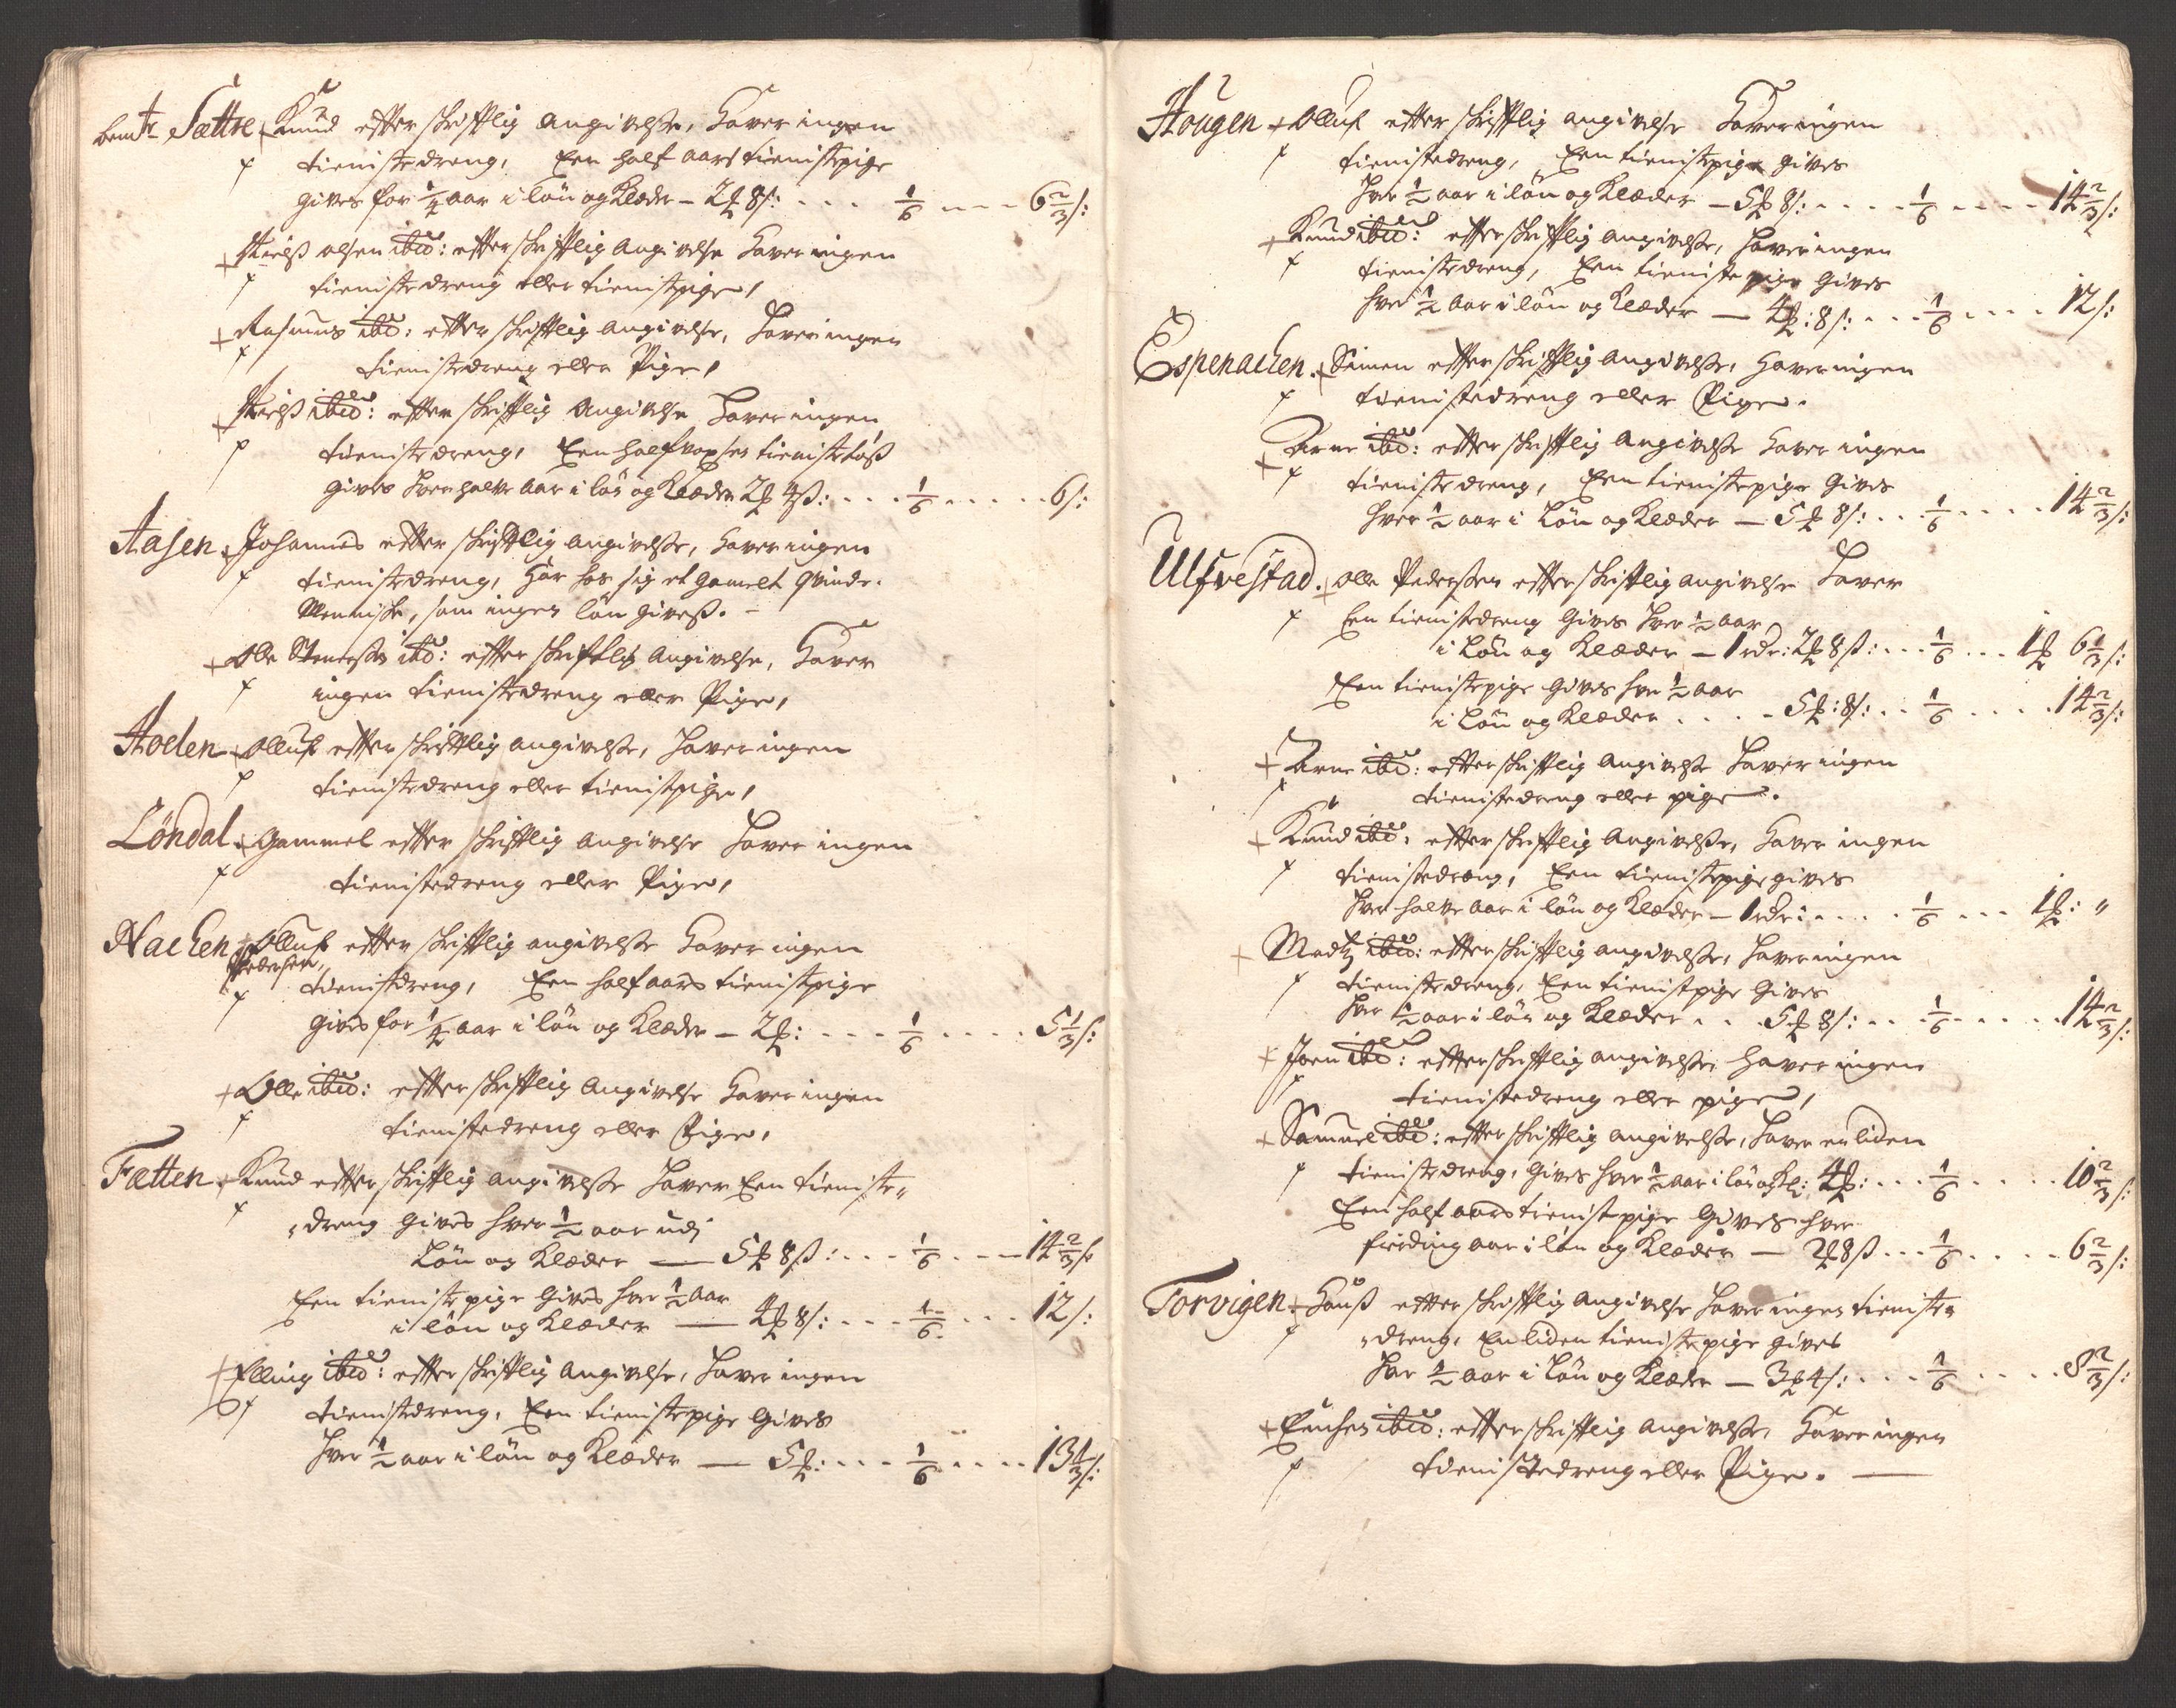 bemte Sættre Knud effter schrifftlig angivelse, haver ingen
tienistedreng, Een half aars tienistepige
gives for ¼ aar i løn og klæder – 2 ß 8 s: 1/6 6 2/3 s:
Niels olsen ibid: effter schrifftlig angivelse haver ingen
tienistedreng eller tienistpige,
Rasmus ibd: effter schrifftlig angivelse, haver ingen
tienistedreng eller Pige,
Niels ibid: effter schrifftlig angivelse haver ingen
tienistedreng, Een halfvoxsen tienistetøs
gives hver halve aar i løn og klæder 2 ß 4 s: 1/6 6 s:
Aasen Johannes effter schrifftlig angivelse, haver ingen
tienistedreng, har hos sig et gamelt qvinde-
Menniske, som ingen løn gives.
Olle ibd: effter schrifftlig angivelse, haver
ingen tienistedreng eller Pige,
Hoelen Olluf effter schrifftlig angivelse, haver ingen
tienistedreng eller tienistpige,
Löndal Gammel effter schrifftlig angivelse haver ingen
tienistedreng eller Pige,
Nacken Olluf effter schrifftlig angivelse haver ingen
Pedersen, tienistdreng, Een half aars tienistpige
gives for ¼ aar i løn og klæder – 2 ß: 1/6 5 1/3 s:
Olle ibid: effter schrifftlig angivelse haver ingen
tienistedreng eller Pige,
Fætten Knud effter schrifftlig angivelse haver Een tieniste-
dreng gives hver ½ aar udj
Løn og klæder – 5 ß 8 s: 1/6 14 2/3 s
Een tienistepige gives hver ½ aar
i løn og klæder – 4 ß 8 s: 1/6 12 s:
Elling ibid: effter schrifftlig angivelse, haver ingen
tienistedreng, Een tienistepige gives
hver ½ aar i løn og klæder – 5 ß: 1/6 13 1/3 s:
Hougen Olluf effter schrifftlig angivelse haver ingen
tienistedreng, Een tienistpige gives
hver ½ aar i løn og klæder – 5 ß 8 s: 1/6 14 2/3 s:
Knud ibid: effter schrifftlig angivelse, haver ingen
tienistedreng, Een tieniste pige gives
hver ½ aar i løn og klæder – 4 ß: 8 s: 1/6 12 s:
Espenacken Simen effter schrifftlig angivelse, haver ingen
tienistedreng eller Pige.
Arne ibd: effter schrifftlig angivelse haver ingen
tienistedreng, Een tienistepige gives
hver ½ aar i Løn og klæder – 5 ß 8 s: 1/6 14 2/3 s:
Ulfvestad Olle Pedersen effter schrifftlig angivelse haver
Een tienistedreng gives hver ½ aar
i Løn og klæder – 1 rdr: 2 ß 8 s: 1/6 1 ß 6 1/3 s:
Een tienistepige gives hver ½ aar
i Løn og klæder 5 ß: 8 s: 1/6 14 2/3 s:
Arne ibd: effter schrifftlig angivelse haver ingen
tienistedreng eller pige.
Knud ibd: effter schrifftlig angivelse, haver ingen
tienistedreng, Een tienistepige gives
hver halve aar i løn og klæder – 1 rdr: 1/6 1 ß: "
Madtz ibid: effter schrifftlig angivelse, haver ingen
tienistedreng, Een tienistpige gives
hver ½ aar i løn og klæder 5 ß 8 s: 1/6 14 2/3 s:
Joen ibd: effter schrifftlig angivelse haver ingen
tienistedreng eller pige,
Samuel ibd: effter schrifftlig angivelse, haver en liden
tienistedreng, gives hver ½ aar i løn og kl: 4 ß: 1/6 10 2/3 s:
Een half aars tienistpige gives hver
fierding aar i løn og klæder – 2 ß 8 s 1/6 6 2/3 s:
Torvigen Hans effter schrifftlig angivelse haver ingen tieniste-
dreng, En liden tienistepige gives
hver ½ aar i Løn og klæder – 3 ß 4 s: 1/6 8 2/3 s:
ibid: effter schrifftlig angivelse, haver ingen
tienistedreng eller Pige. –